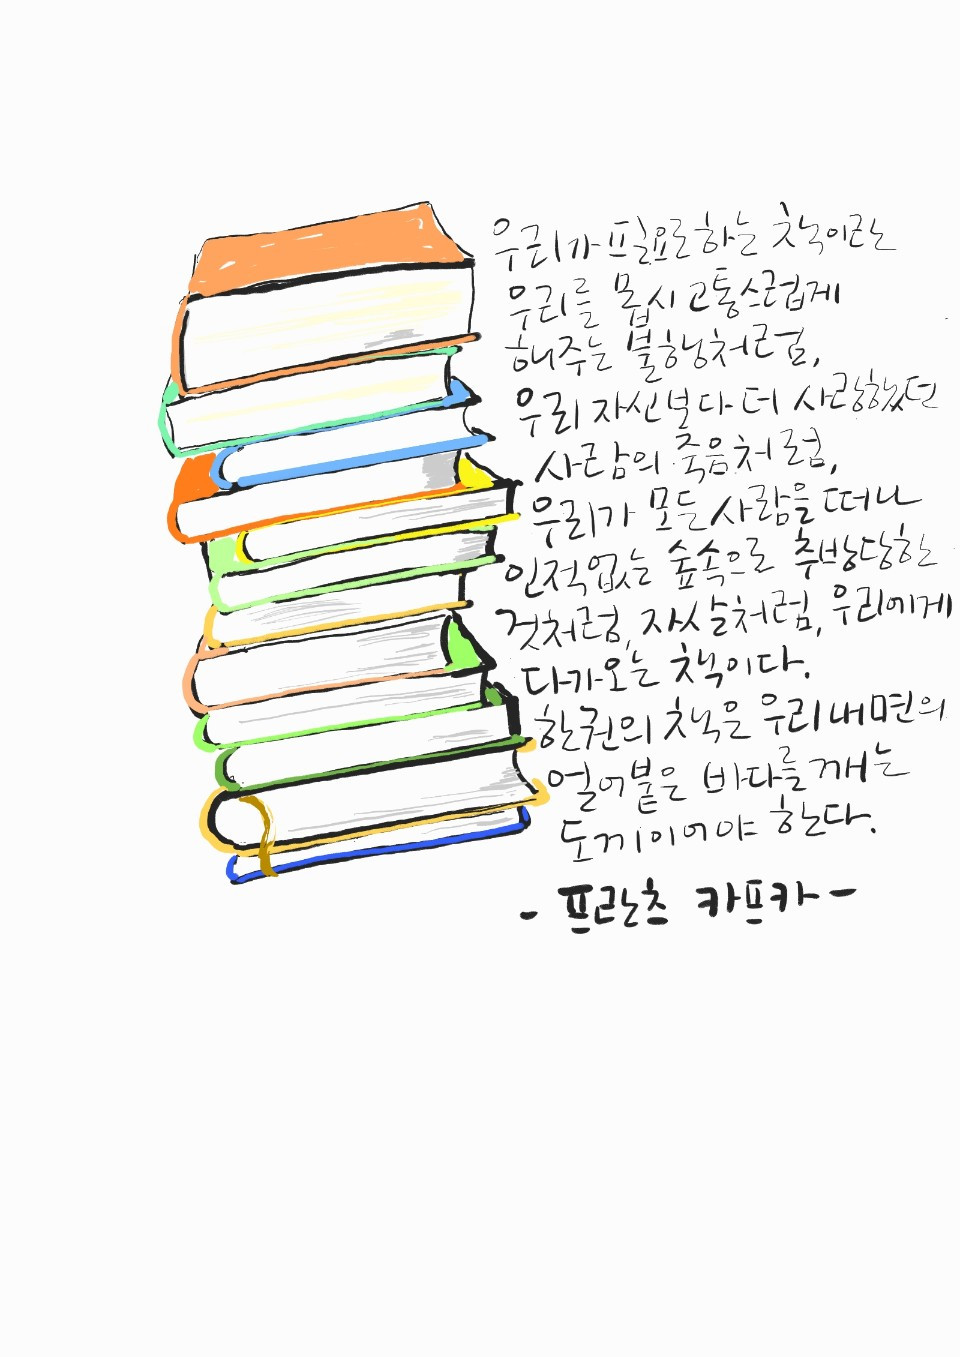 우리가 필요로 하는 책이란
우리를 몹시 고통스럽게
해주는 불행처럼,
우리 자신보다 더 사랑했던
사람의 죽음처럼,
우리가 모든 사람을 떠나
인적없는 숲속으로 추방당한
것처럼, 자살처럼, 우리에게
다가오는 책이다.
한권의 책은 우리 내면의
얼어붙은 바다를 깨는
도끼이어야 한다.
- 프란츠 카프카 -